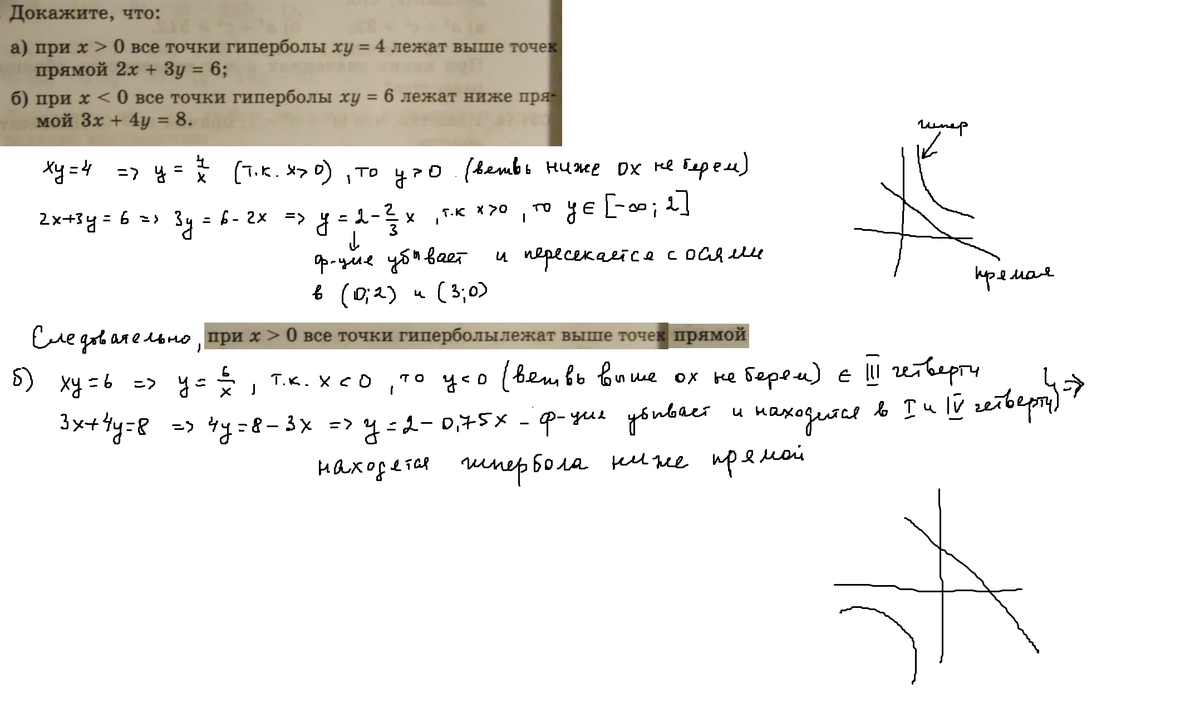 Докажите, что:
а) при x > 0 все точки гиперболы xy = 4 лежат выше точек
прямой 2x + 3y = 6;
б) при x < 0 все точки гиперболы xy = 6 лежат ниже пря-
мой 3x + 4y = 8.
гипер
xy=4 => y = 4/x (т.к. x>0), то y>0 (ветвь ниже ох не берем)
2x+3y=6 => 3y=6-2x => y=2-2/3x, т.к x>0, то y∈[-∞;2]
ф-ция убывает и пересекается с осями
в (0;2) и (3;0)
прямая
Следовательно, при x > 0 все точки гиперболылежат выше точек прямой
б) xy=6 => y=6/x, т.к. x<0, то y<0 (ветвь выше ох не берем) ∈ III четверти
3x+4y=8 => 4y=8-3x => y=2-0,75x - ф-ция убывает и находится в I и IV четверти =>
находится гипербола ниже прямой